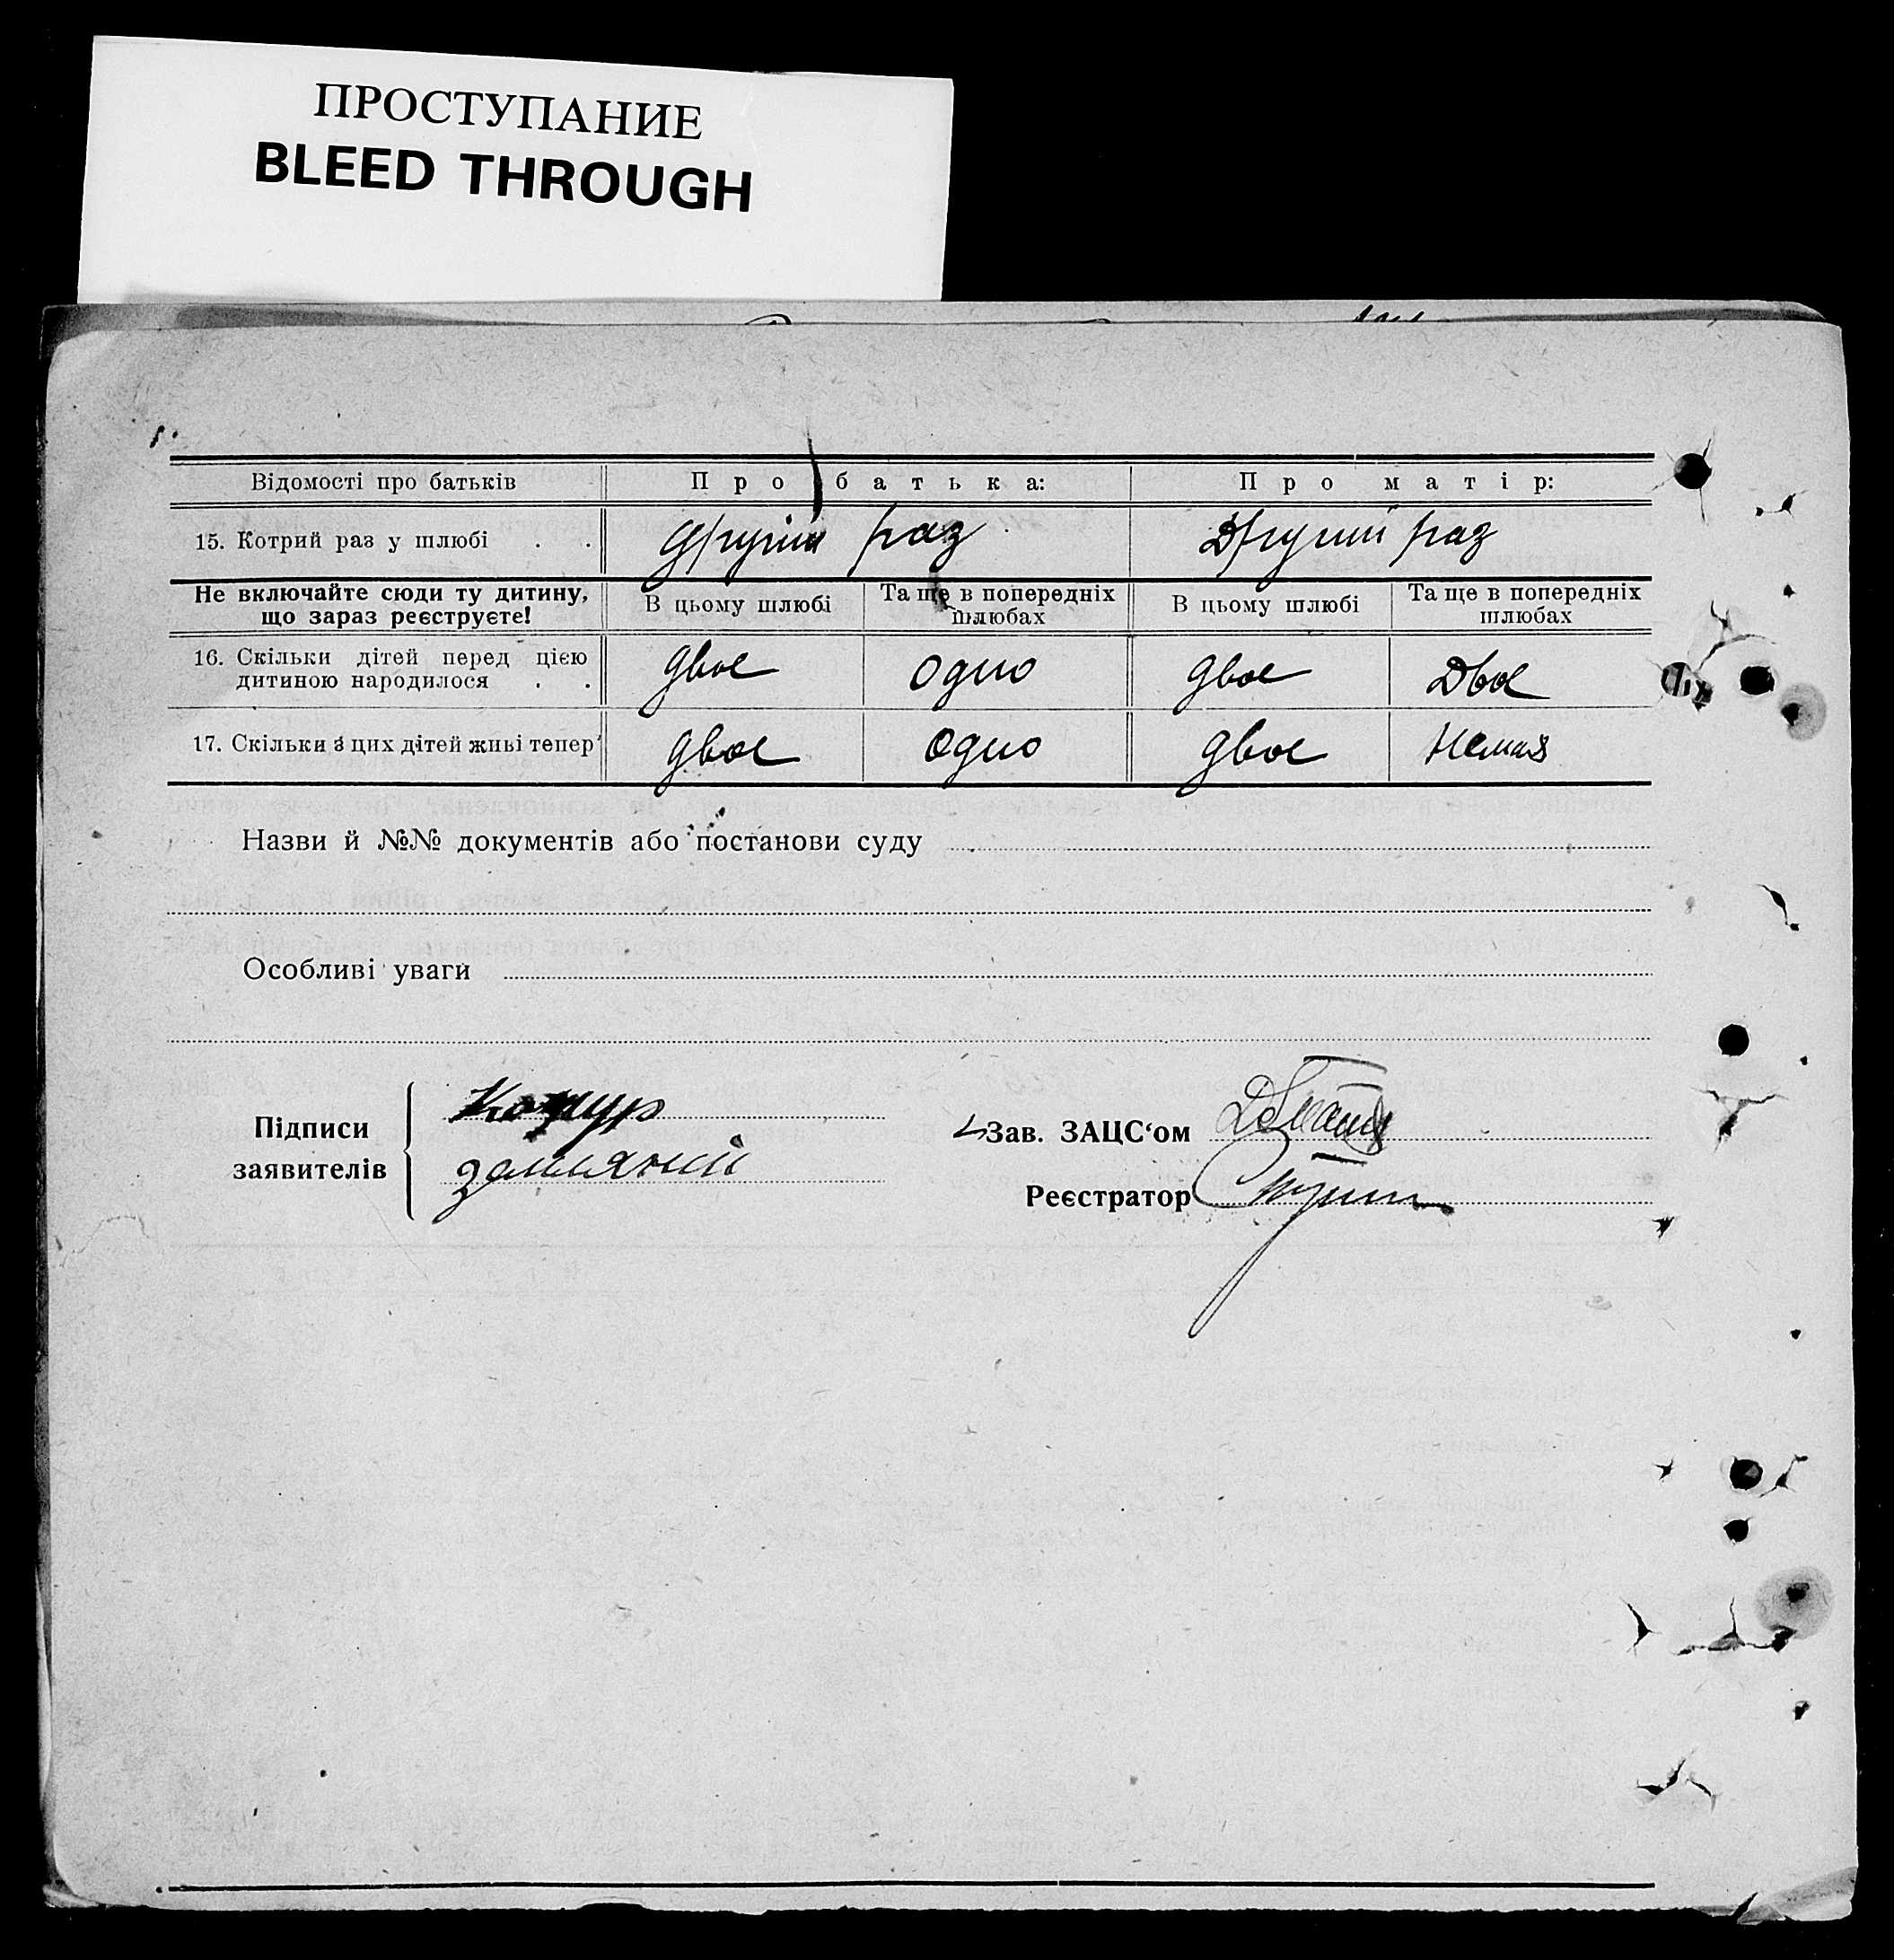 ПРОСТУПАНИЕ
BLEED THROUGH
Відомості про батьків Про батька: Про матір:
15. Котрий раз у шлюбі . . другий раз Другий раз
Не включайте сюди ту дитину, що зараз реєструєте! В цьому шлюбі Та ще в попередніх шлюбах В цьому шлюбі Та ще в попередніх шлюбах
16. Скільки дітей перед цією дитиною народилося . . двоє одно двоє Двоє
17. Скільки з цих дітей живі тепер двоє одно двоє Немає
Назви й №№ документів або постанови суду
Особливі уваги
Підписи заявителів
Зав. ЗАЦС‘ом
Реєстратор